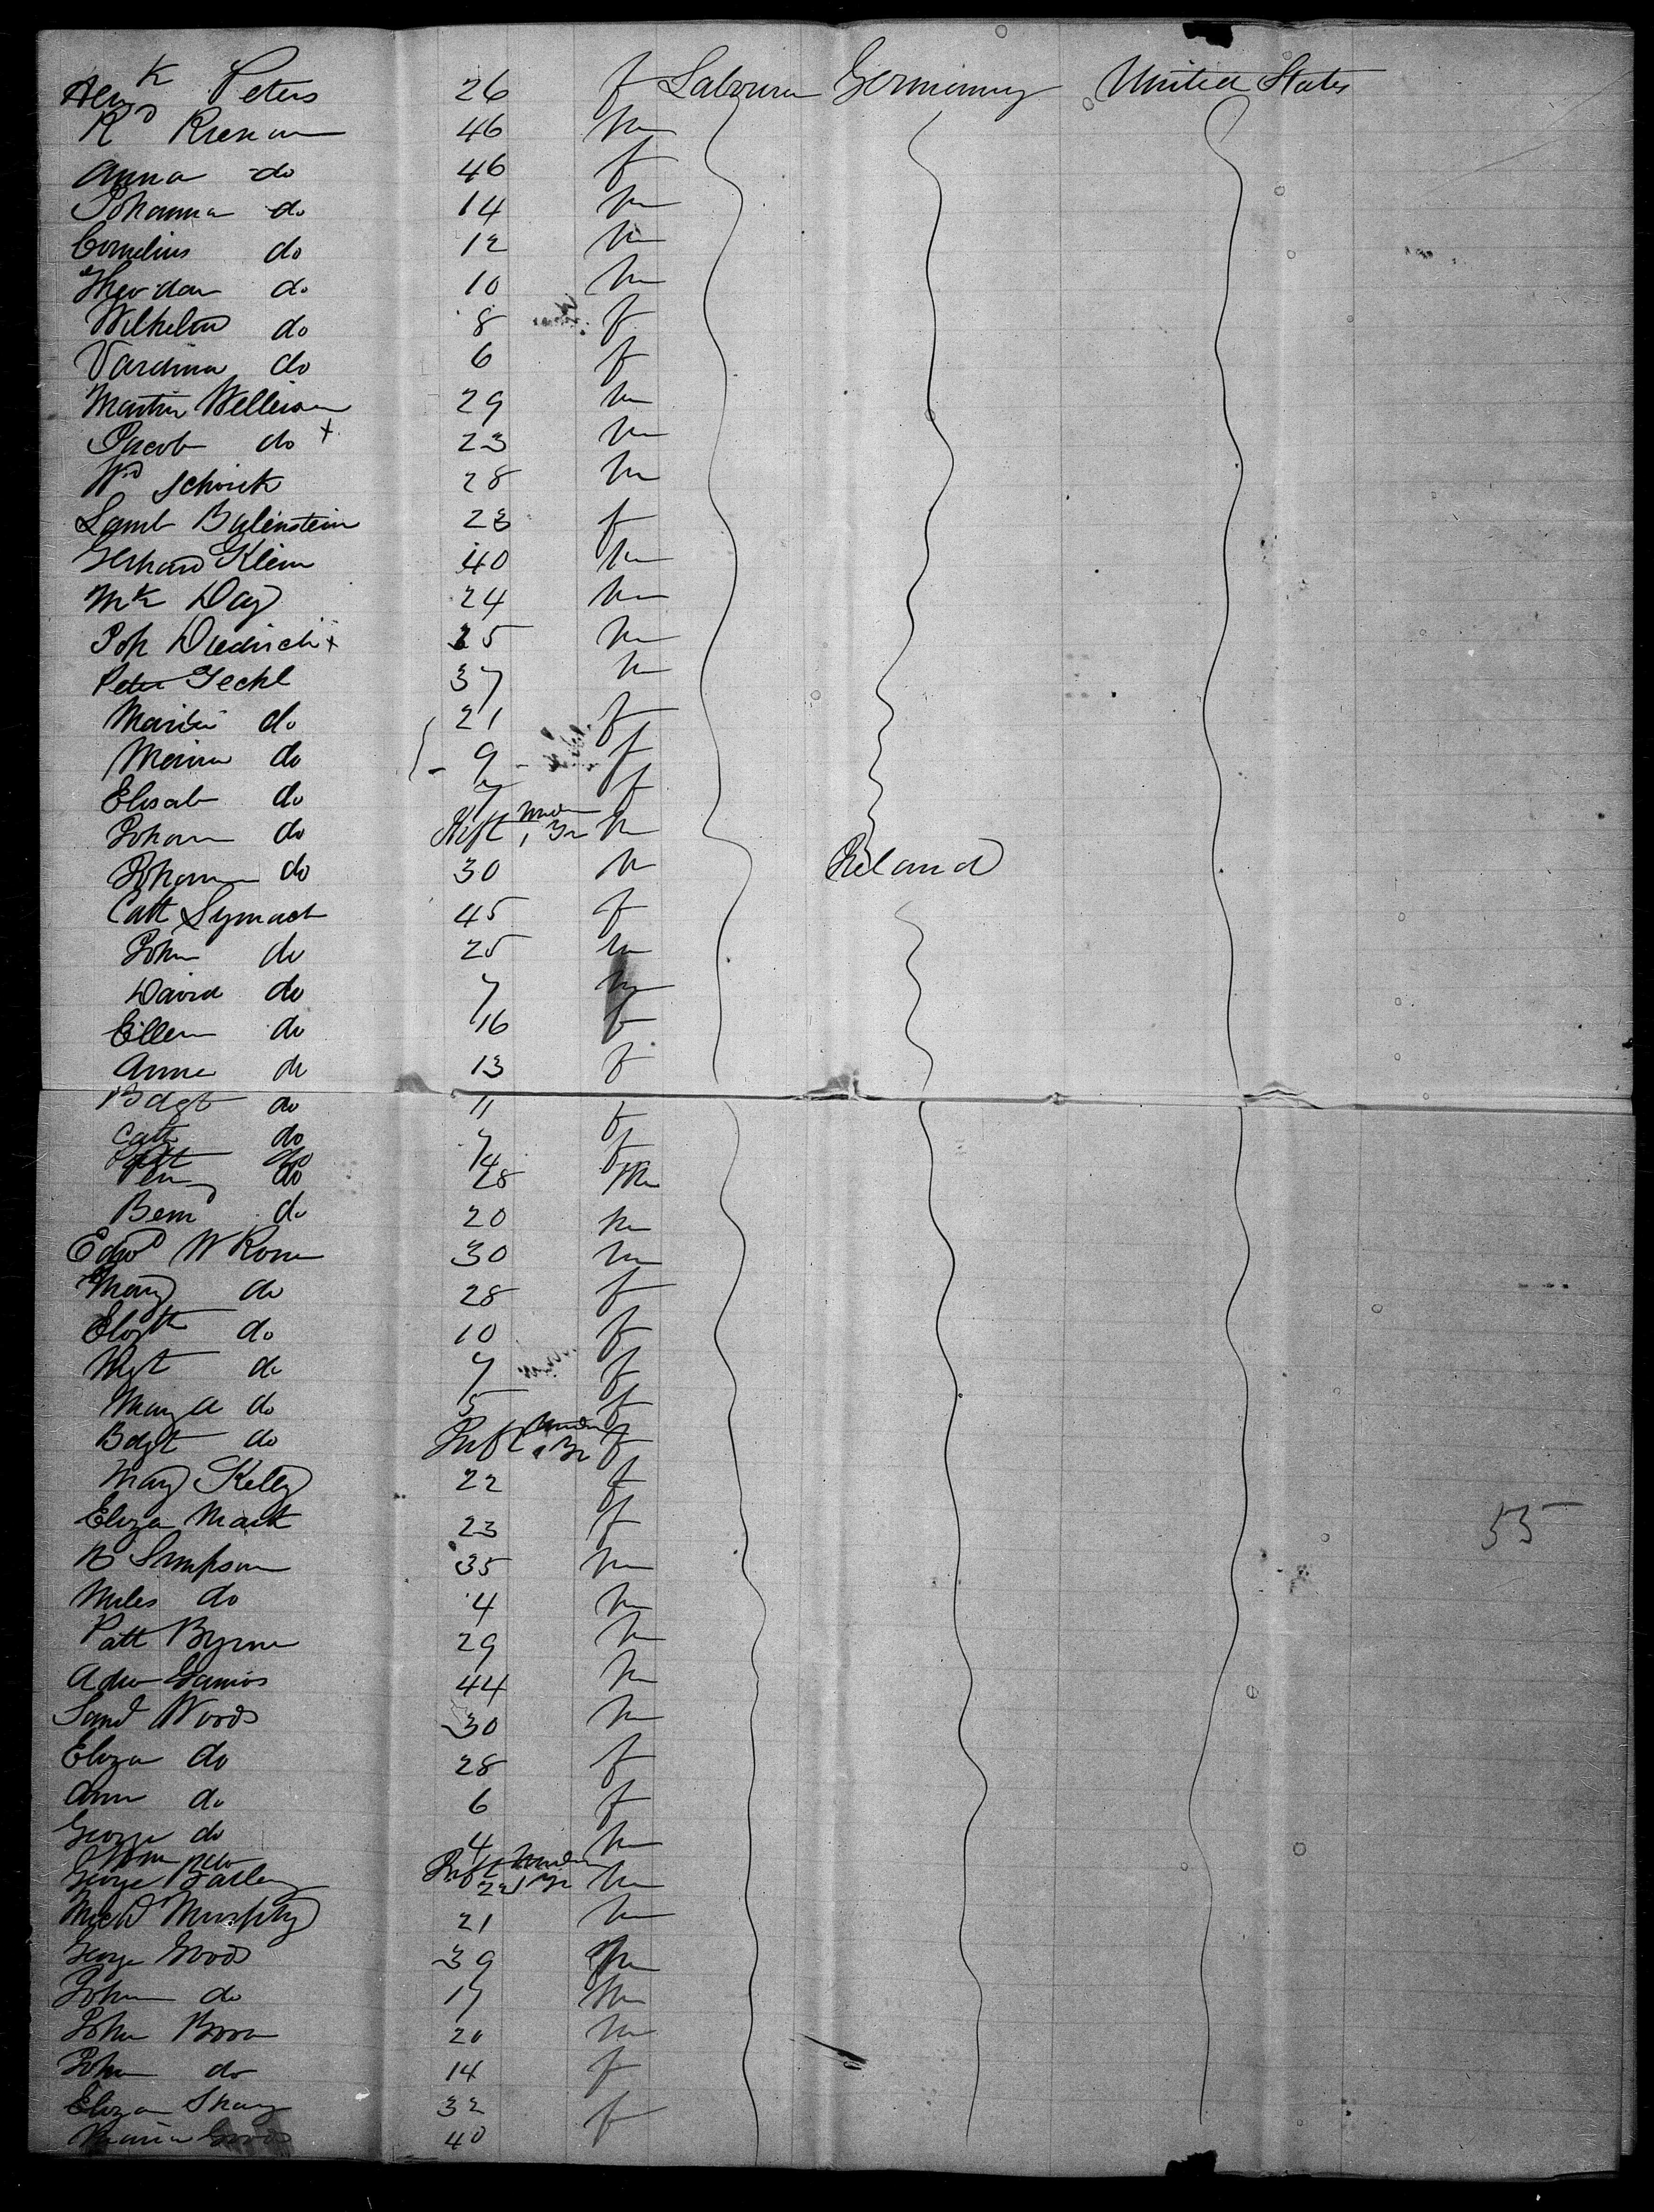 Hen^k Peters 26 f Labourer Germany United States
R^d Kresum 46 m
Anna do 46 f
Johanna do 14 m
Cornelius do 12 m
Theodor do 10 m
Wilhelm do 8 f
Vardina do 6 f
Martin Willeison 29 m
Jacob do + 23 m
W^d Schvick 28 m
Lamb Bulenstein 23 f
Gerhard Klein 40 m
M^k Day 24 m
Joh Diedrich + 25 m
Peter Jeckl 37 m
Maria do 21 f
Meinna do - 9 - f
Elisab do 7 f
Johan do Inft under 1 Yr m
Johann do 30 m Ireland
Cath Lymach 45 f
John do 25 m
David do 7 m
Ellen do 16 f
Anne do 13 f
Bdgt do 11 f
Cath do 7 f
Patt do 4
do 28 m
Bern^d do 20 m
Edw^d W Rone 30 m
Mary do 28 f
Elizth do 10 f
Mgt do 7 f
Mary A do 5 f
Bdgt do Inft under 1 Yr f
Mary Kelly 22 f
Eliza Mark 23 f
55
W Simpson 35 m
Miles do 4 m
Patt Byrne 29 m
Adw Gamios 44 m
Saml Woods 30 m
Eliza do 28 f
Ann do 6 f
George do 4 m
Wm do Inft under 1 Yr
George Barley 22 m
Mich^l Murphy 21 m
George Woods 39 m
John do 17 m
John Bora 20 m
John do 14 f
Eliza Shary 32 f
Maria Woods 40